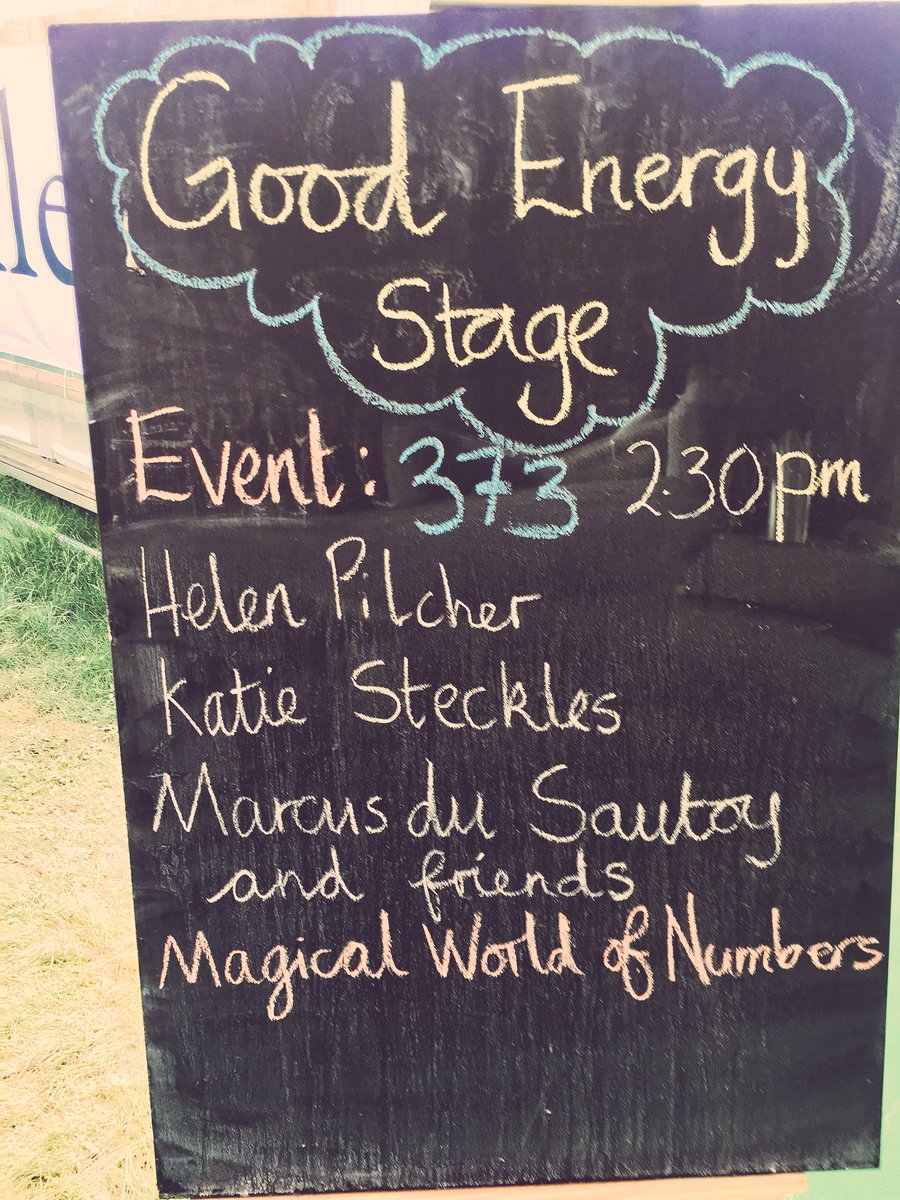 Good Energy
Stage
Event: 373 2.30pm
Helen Pilcher
Katie Steckles
Marcus du Sautoy
and friends
Magical World of Numbers